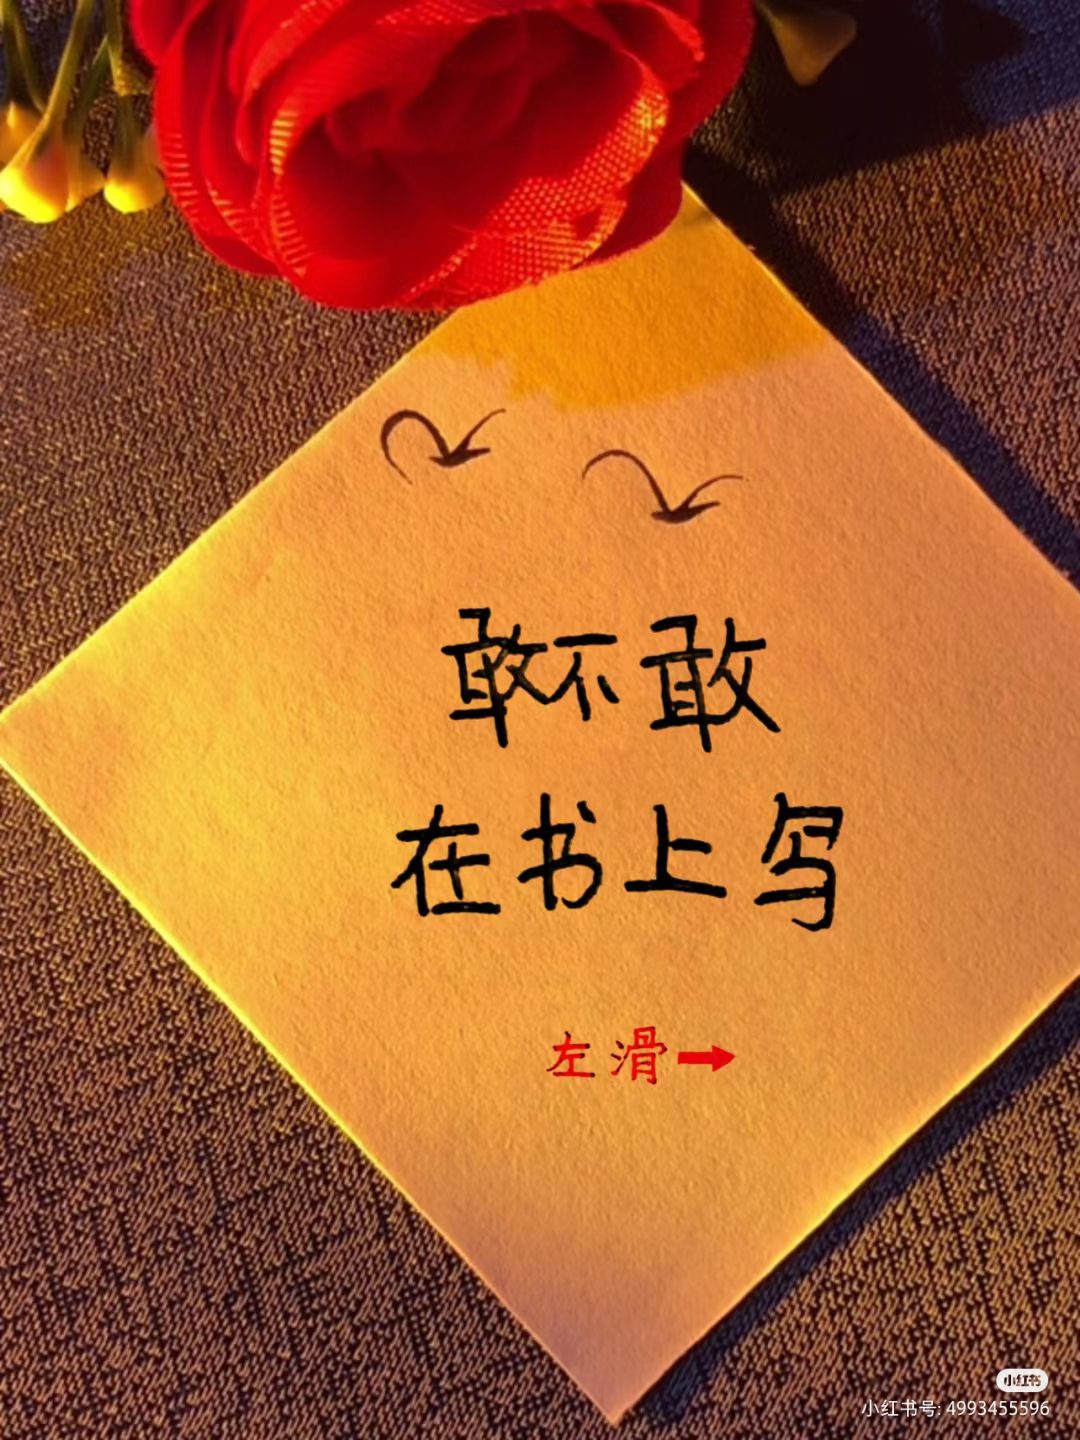 敢不敢
在书上写
左滑→
小红书
小红书号: 4993455596